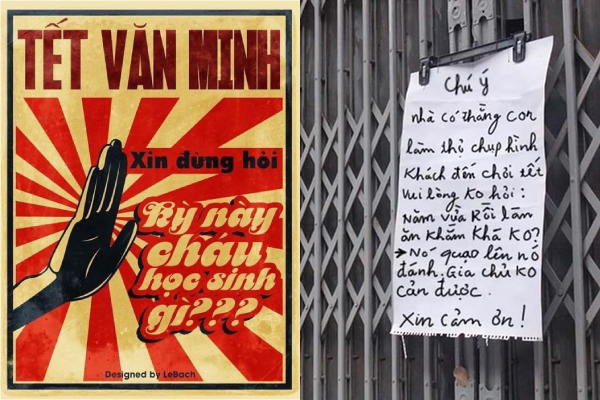 TẾT VĂN MINH
Xin đừng hỏi
Kỳ này
cháu
học sinh
gì???
Designed by LeBach
Chú ý
nhà có thằng con
làm thợ chụp hình
Khách đến chơi tết
vui lòng ko hỏi:
Năm vừa Rồi làm
ăn khấm khá ko?
→ Nó quạo lên nó
đánh. Gia chủ ko
cản được.
Xin cảm ơn!